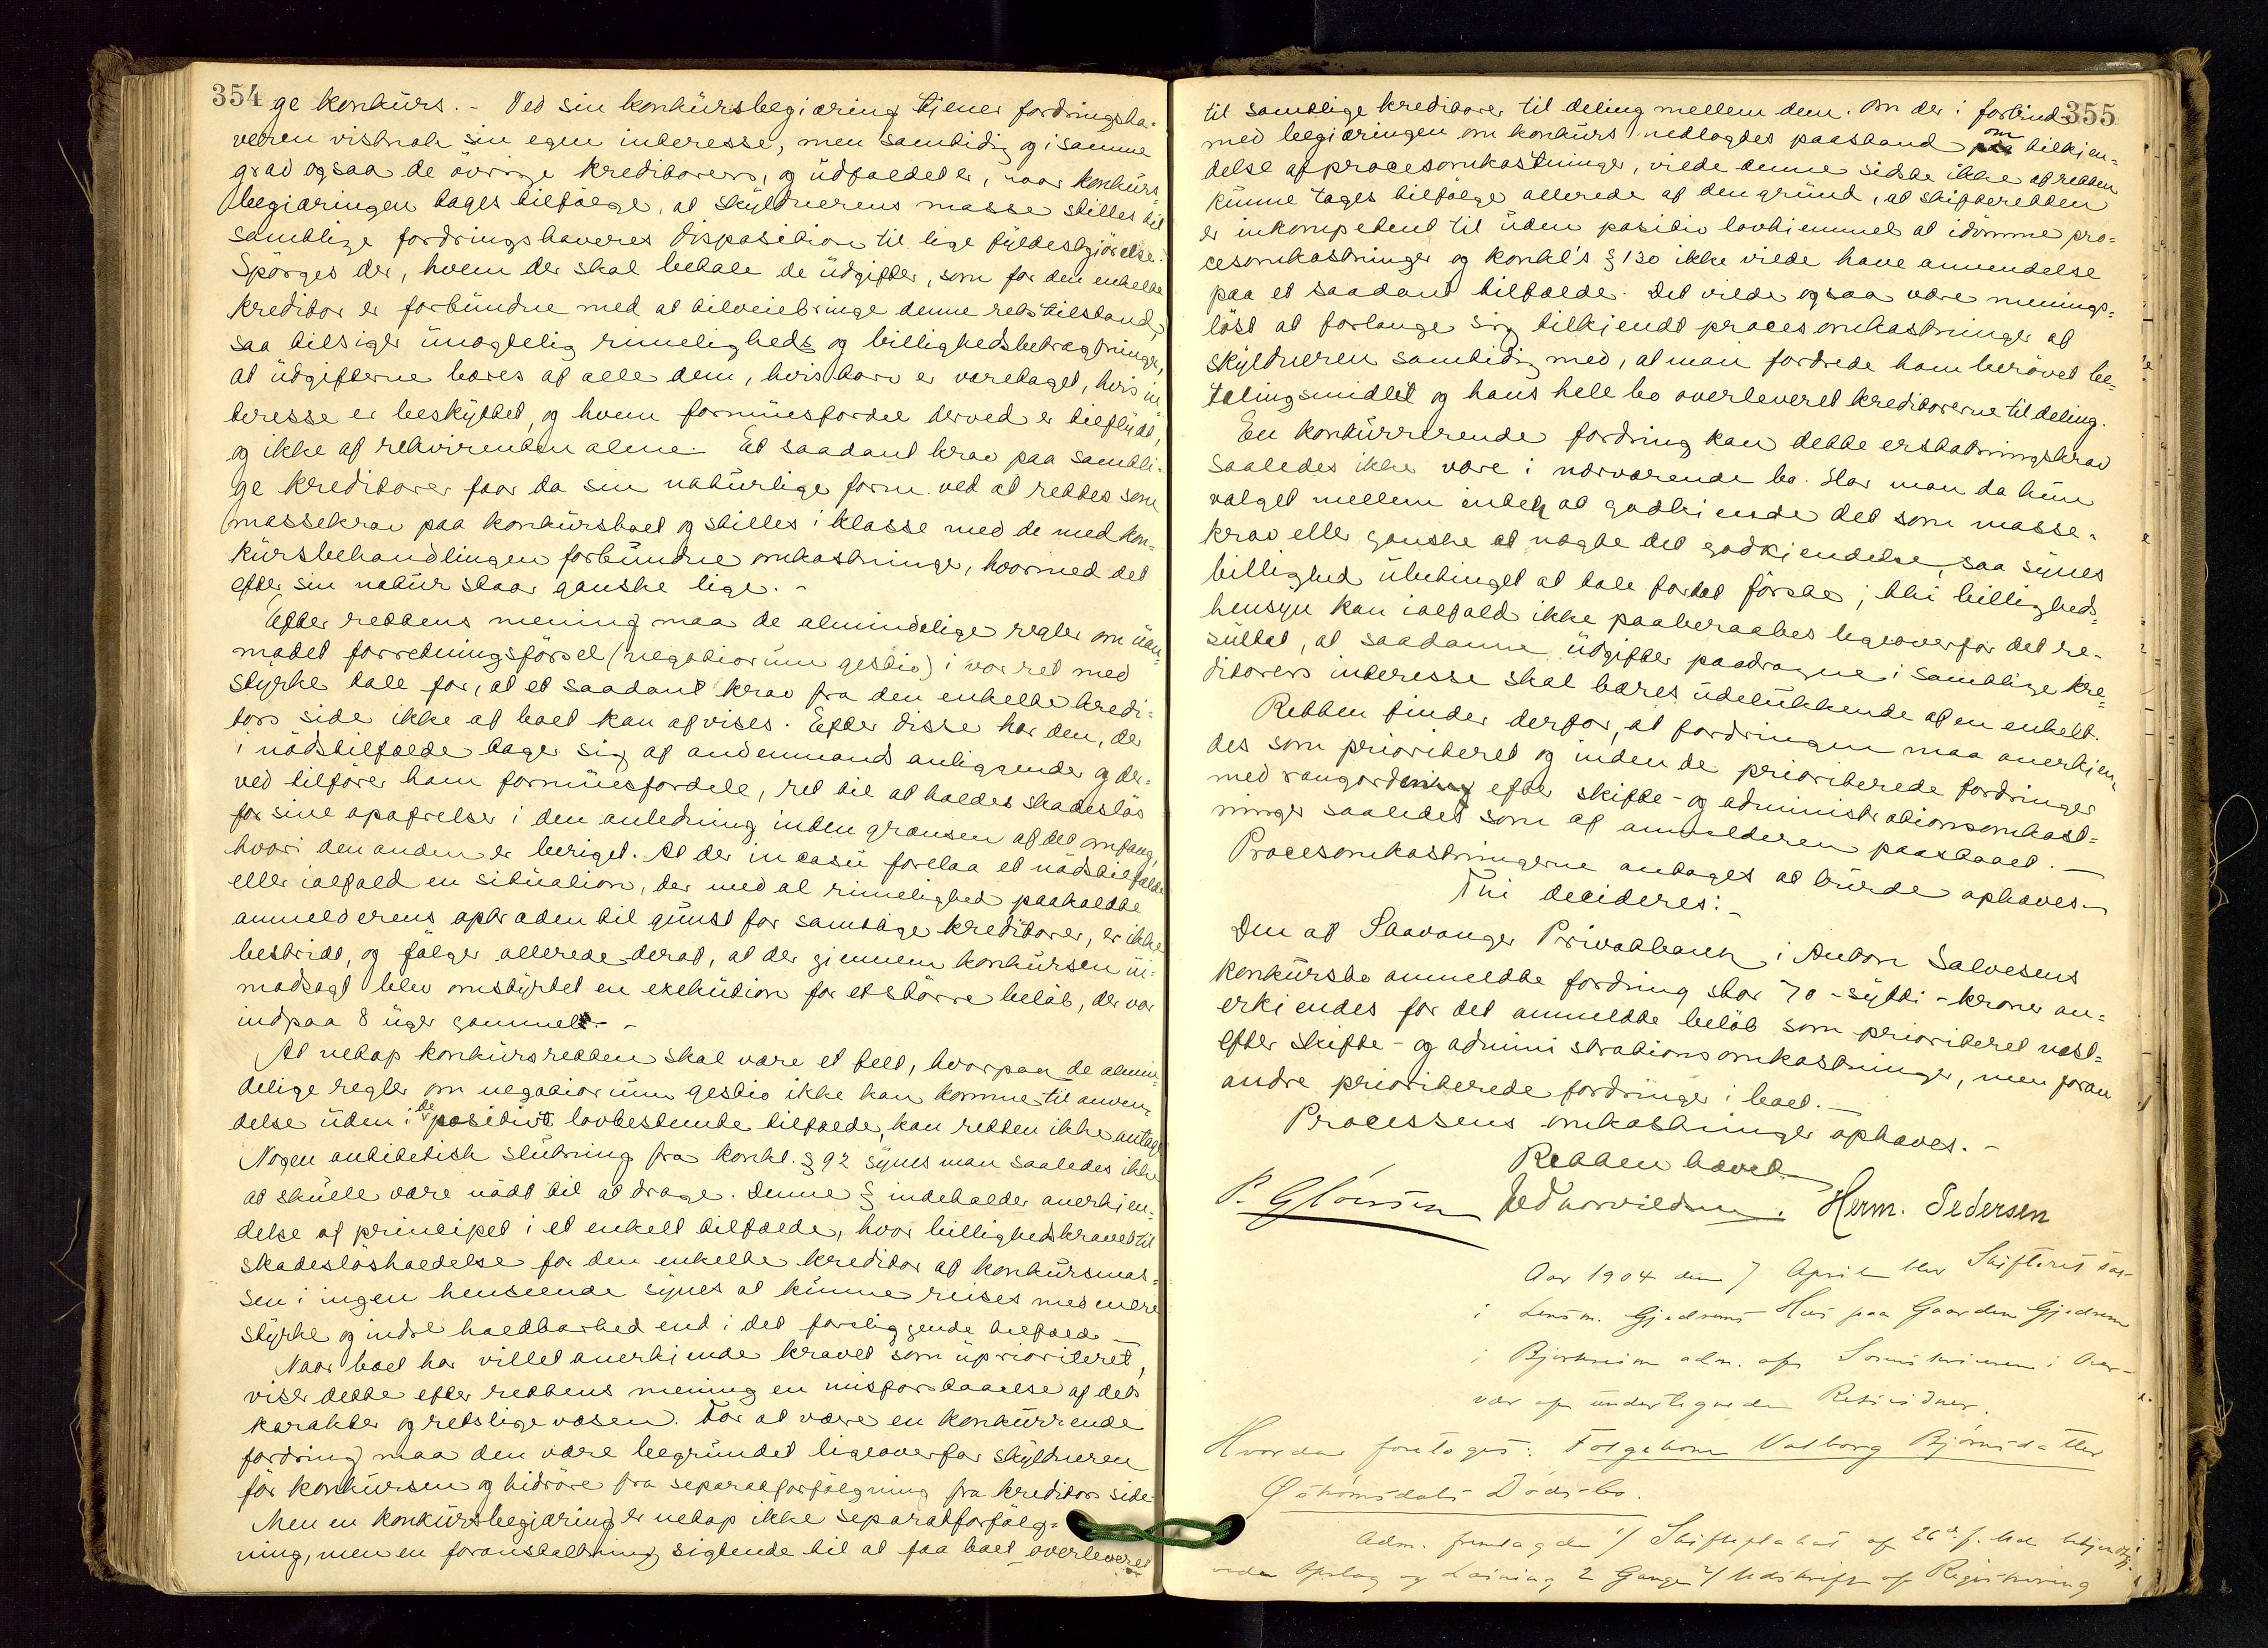 354
ge konkürs. - Ved sin konkürsbegiæring tjener fordringsha-
veren vistnok sin egen interesse, men samtidig og i samme
grad ogsaa de övrige kreditorers, og üdfaldet er, naar konkürs-
begiæringen tages tilfölge, at skyldnerens masse stilles til
samtlige fordringshaveres disposition til lige fyldestgjörelse.
Spörges der, hvem der skal betale de üdgifter, som for den enkelte
kreditor er forbündne med at tilveiebringe denne retstilstand,
saa tilsiger ünægtelig rimeligheds og billighedsbetragtninger,
at üdgifterne bæres af alle dem, hvis tarv er varetaget, hvis in
teresse er beskyttet, og hvem formüesfordel derved er tilflydt,
og ikke af rekvirenten alene. Et saadant krav paa samtli-
ge kreditorer faar da sin natürlige form ved at rettes som
massekrav paa konkürsboet og stilles i klasse med de med kon-
kürsbehandlingen forbündne omkostninger, hvormed det
efter sin natür staar ganske lige. -
Efter rettens mening maa de almindelige regler om üan-
modet forretningsförsel (negotiorüm gestio) i vor ret med
styrke tale for, at et saadant krav fra den enkelte kredi-
tors side ikke af boet kan afvises. Efter disse har den, der
i nödstilfælde tager sig af andenmands anliggender og der-
ved tilförer ham formüesfordele, ret til at holdes skadeslös
for sine opofrelser i den anledning inden grænsen af det omfang,
hvori den anden er beriget. At der in casü forelaa et nödstilfælde
eller ialfald en sitüation, der med al rimelighed paakaldte
anmelderens optræden til günst for samtlige kreditorer, er ikke
bestridt, og fölger allerede deraf, at der giennem konkürsen ü-
modsagt blev omstyrtet en exekütion for et större belöb, der var
indpaa 8 üger gammel. -
At netop konkürsretten skal være et felt, hvorpaa de almin-
delige regler om negotiorüm gestio ikke kan komme til anven-
delse üden i de positivt lovbestemte tilfælde, kan retten ikke antage
Nogen antitetisk slütning fra konkl. § 92 synes man saaledes ikke
at sküle være nödt til at drage. Denne § indeholder anerkjen-
delse af principet i et enkelt tilfælde, hvor billighedskravet til
skadeslösholdelse for den enkelte kreditor af konkürsmas-
sen i ingen henseende synes at künne reises med mere
styrke og indre holdbarhed end i det foreliggende tilfælde -
Naar boet har villet anerkiende kravet som üprioriteret,
viser dette efter rettens mening en misforstaaelse af dets
karakter og retslige væsen. For at være en konkürrende
fordring maa den være begründet ligeoverfor skyldneren
för konkürsen og hidröre fra separatforfölgning fra kreditors side.
Men en konkürsbegjæring er netop ikke separatforfölg-
ning, men en foranstaltning sigtende til at faa boet overleveret
355
til samtlige kreditorer til deling mellem dem. Om der i forbind-
med begiæringen om konkürs nedlagdes paastand om tilkien-
delse af procesomkostninger, vilde denne sidste ikke af retten
künne tages tilfölge allerede af den gründ, at skifteretten
er inkompetent til üden positiv lovhiemmel at idömme pro-
cesomkostninger og konkl's § 130 ikke vilde have anvendelse
paa et saadant tilfælde. Det vilde ogsaa være menings-
löst at forlange sig tilkjendt procesomkostninger af
skyldneren samtidig med, at man fordrede ham berövet be-
talingsmidlet og hans hele bo overleveret kreditorerne til deling.
En konkürrerende fordring kan dette erstatningskrav
saaledes ikke være i nærværende bo. Har man da kün
valget mellem enten at godkiende det som masse-
krav eller ganske at nægte det godkiendelse, saa synes
billighed übetinget at tale for det förste; thi billigheds-
hensyn kan ialfald ikke paaberaabes ligeoverfor det re-
sültat, at saadanne üdgifter paadragne i samtlige kre-
ditorers interesse skal bæres üdelükkende af en enkelt.
Retten finder derfor, at fordringen maa anerkjen-
des som prioriteret og inden de prioriterede fordringer
med rangordning efter skifte- og administrationsomkost-
ninger saaledes som af anmelderen paastaaet. -
Procesomkostningerne antages at bürde ophæves. -
Thi decideres: -
Den af Stavanger Privatbank i Anton Salvesens
konkürsbo anmeldte fordring stor 70 - sytti - kroner an-
erkiendes for det anmeldte belöb som prioriteret næst-
efter skifte- og administrationsomkostninger, men foran
andre prioriterede fordringer i boet. -
Processens omkostninger ophæves. -
Retten hævet
Herm. Pedersen
Aar 1904 den 7 April blev Skifteret sat
i Lensm. Gjedrems Hus paa Gaarden Gjedrem
i Bjerkreim adm. af Sorenskriveren i Over-
vær af undertegnede Retsvidner.
Hvordar foretoges: Folgekone Valborg Bjørnsdatter
Dødsbo.
Adm. fremlagde 1/ Skifteplakat af 26d. f. Md. bekjendtgj.
ved Opslag og Læsning 2 Gange 2/ Udskrift af Registrering